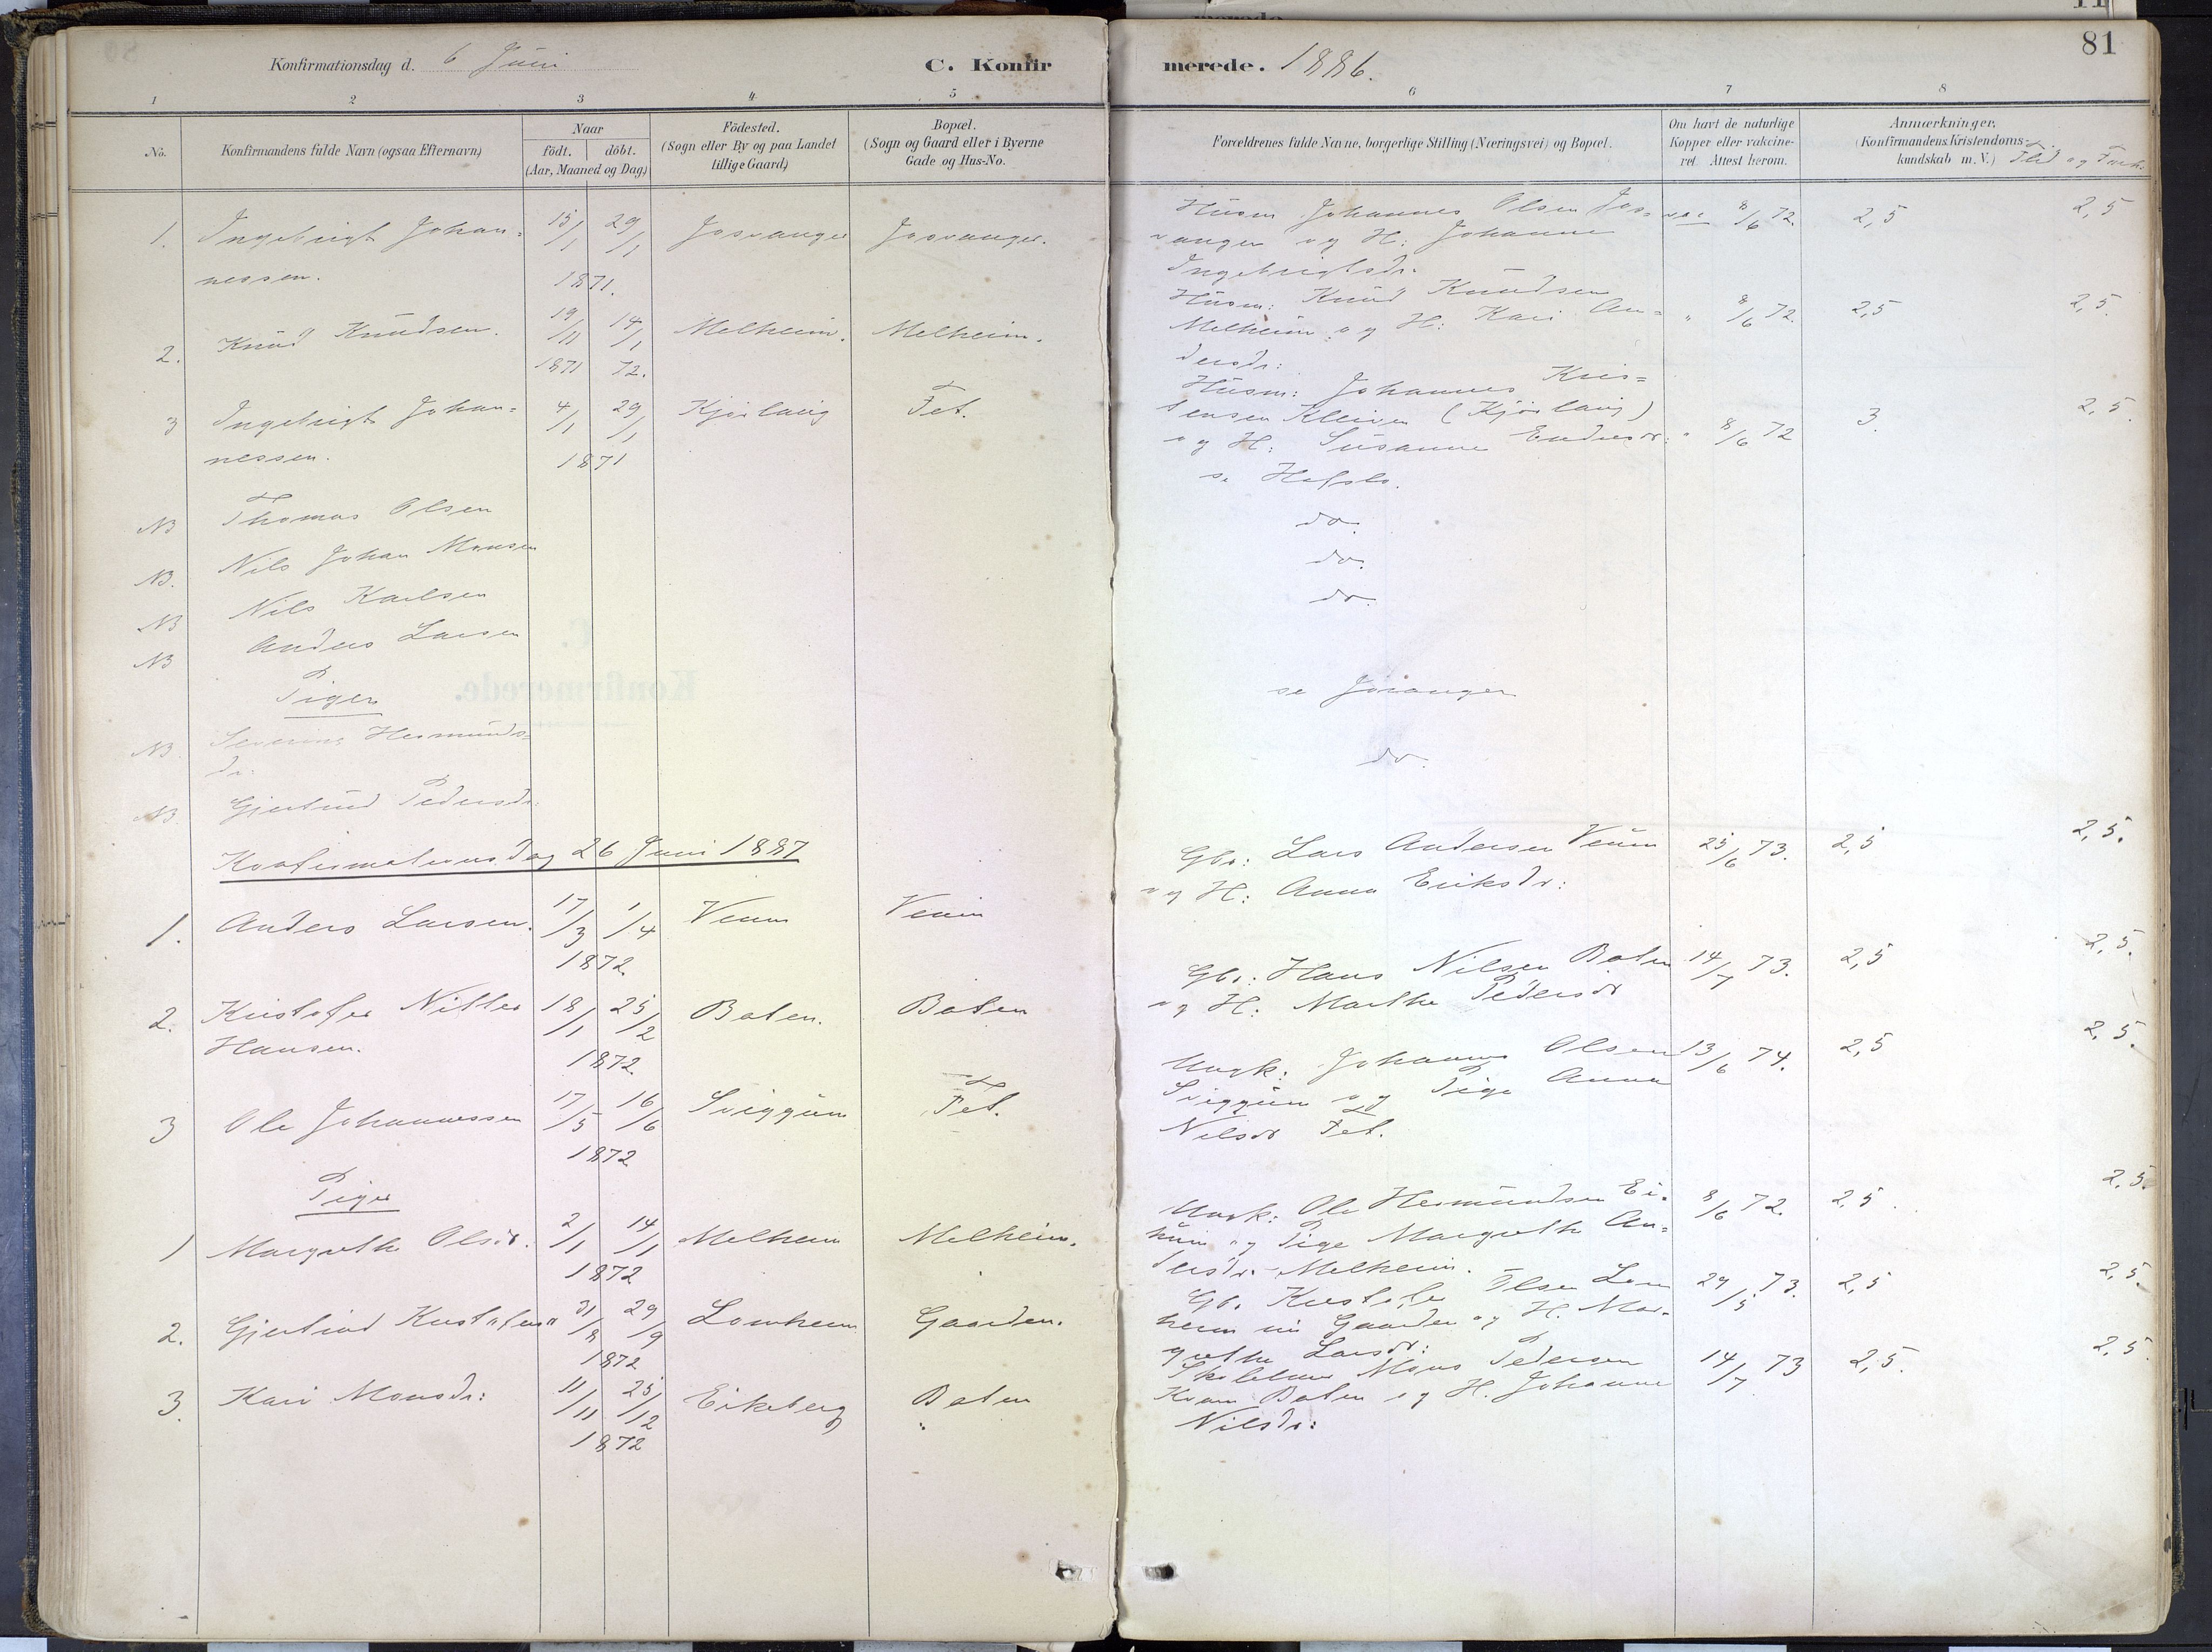 81
Konfirmationsdag d. 6 Juni
C. Konfirmerede. 1886.
1 2 3 4 5 6 7 8
No.
Konfirmandens fulde Navn (ogsaa Efternavn)
Naar
födt. döbt.
(Aar, Maaned og Dag)
Födested.
(Sogn eller By og paa Landet
tillige Gaard)
Bopæl.
(Sogn og Gaard eller i Byerne
Gade og Hus-No.
Forældrenes fulde Navne, borgerlige Stilling (Næringsvei) og Bopæl.
Om havt de naturlige
Kopper eller vakcine-
ret. Attest herom.
Anmærkninger,
(Konfirmandens Kristendoms-
kundskab m. V.) Flid og Forh.
1. Ingebrigt Johan=
nessen.
15/1 29/1
1871.
Josvanger Josvanger.
Husm Johannes Olsen Jos=
vanger og H: Johanne
Ingebrigtsdr.
vac 8/6 72. 2,5 2,5
2. Knud Knudsen.
19/11 14/1
1871 72.
Melheim. Melheim.
Husm: Knud Knudsen
Melheim og H: Kari An=
dersdr:
" 8/6 72. 2,5 2,5.
3 Ingebrigt Johan=
nessen.
4/1 29/1
1871
Kjörlaug Fet.
Husm: Johannes Kris=
tensen Kleiven (Kjörlaug)
og H: Susanne Endresdr:
" 8/6 72 3. 2,5.
NB Thomas Olsen se Hafslo.
NB. Nils Johan Monsen do.
NB Nils Karlsen do.
NB Anders Larsen do.
Piger
NB Severine Hermunds=
dr:
se Joranger
NB. Gjertrud Pedersdr: do.
Konfirmationsdag 26 Juni 1887
1. Anders Larsen.
17/3 1/4
1872.
Veum Veum
Gbr: Lars Andersen Veum
og H: Anna Eriksdr:
25/6 73. 2,5 2,5.
2. Kristofer Nitter
Hansen.
18/1 25/2
1872
Bolen. Bolen
Gbr: Hans Nilsen Bolen
og H: Marthe Pedersdr
14/7 73. 2,5 2,5.
3 Ole Johannessen
17/5 16/6
1872
Sviggum Fet.
Ungk: Johannes Olsen
Sviggum og Pige Anna
Nilsdr Fet.
13/6 74. 2,5 2,5.
Piger
1 Margrethe Olsdr.
2/1 14/1
1872
Melheim Melheim.
Ungk: Ole Hermundsen Ei=
kum og Pige Margrethe An=
dersdr. Melheim.
8/6 72. 2,5. 2,5.
2. Gjertrud Kristofersdr
31/8 29/9
1872
Lomheim Gaarden.
Gbr Kristofer Olsen Lom
heim nu Gaarden og H. Mar-
grethe Larsdr:
29/5 73. 2,5 2,5.
3. Kari Monsdr:
11/11 25/12
1872
Eikeberg Bolen
Skolelærer Mons Pedersen
Kvam Bolen og H. Johanne
Nilsdr:
14/7 73 2,5. 2,5.